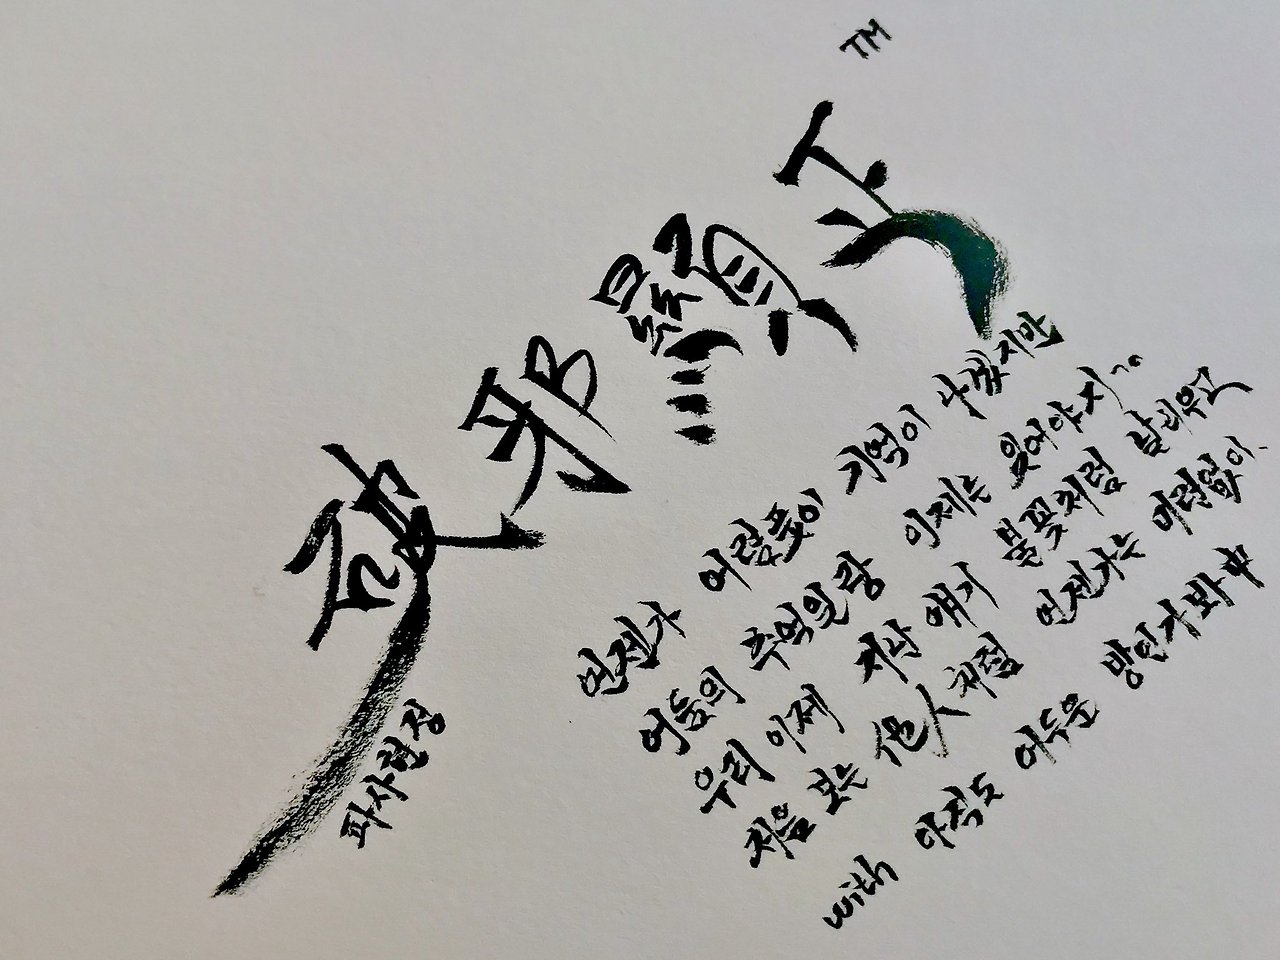 破邪顯正 TM
파사현정
언젠가 어렴풋이 기억이 나겠지만
어둠의 추억일랑 이제는 잊어야지~
우리 이제 지난 얘기 불꽃처럼 날리우고
처음 보는 他人처럼 언젠가는 미련없이
with 아직도 어두운 밤인가봐 中